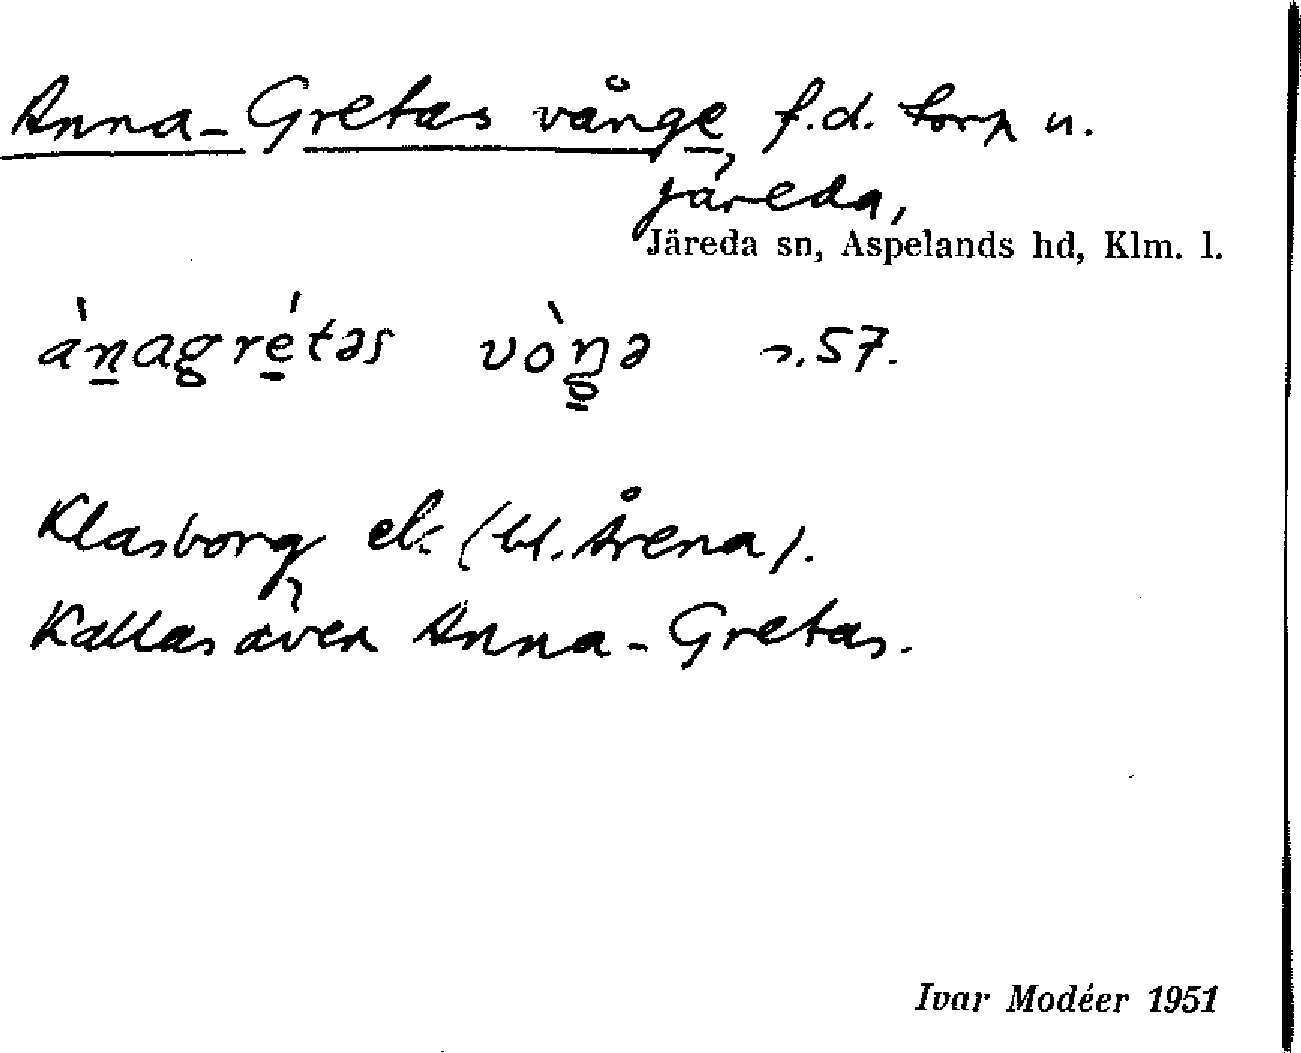 Anna-Gretas vånge f.d. torp u.
Järeda,
Järeda sn, Aspelands hd, Klm. l.
ànagrétəs vòŋə s.57.
Klasborg ek. (bl. Årena).
Kallas även Anna-Gretas.
Ivar Modéer 1951